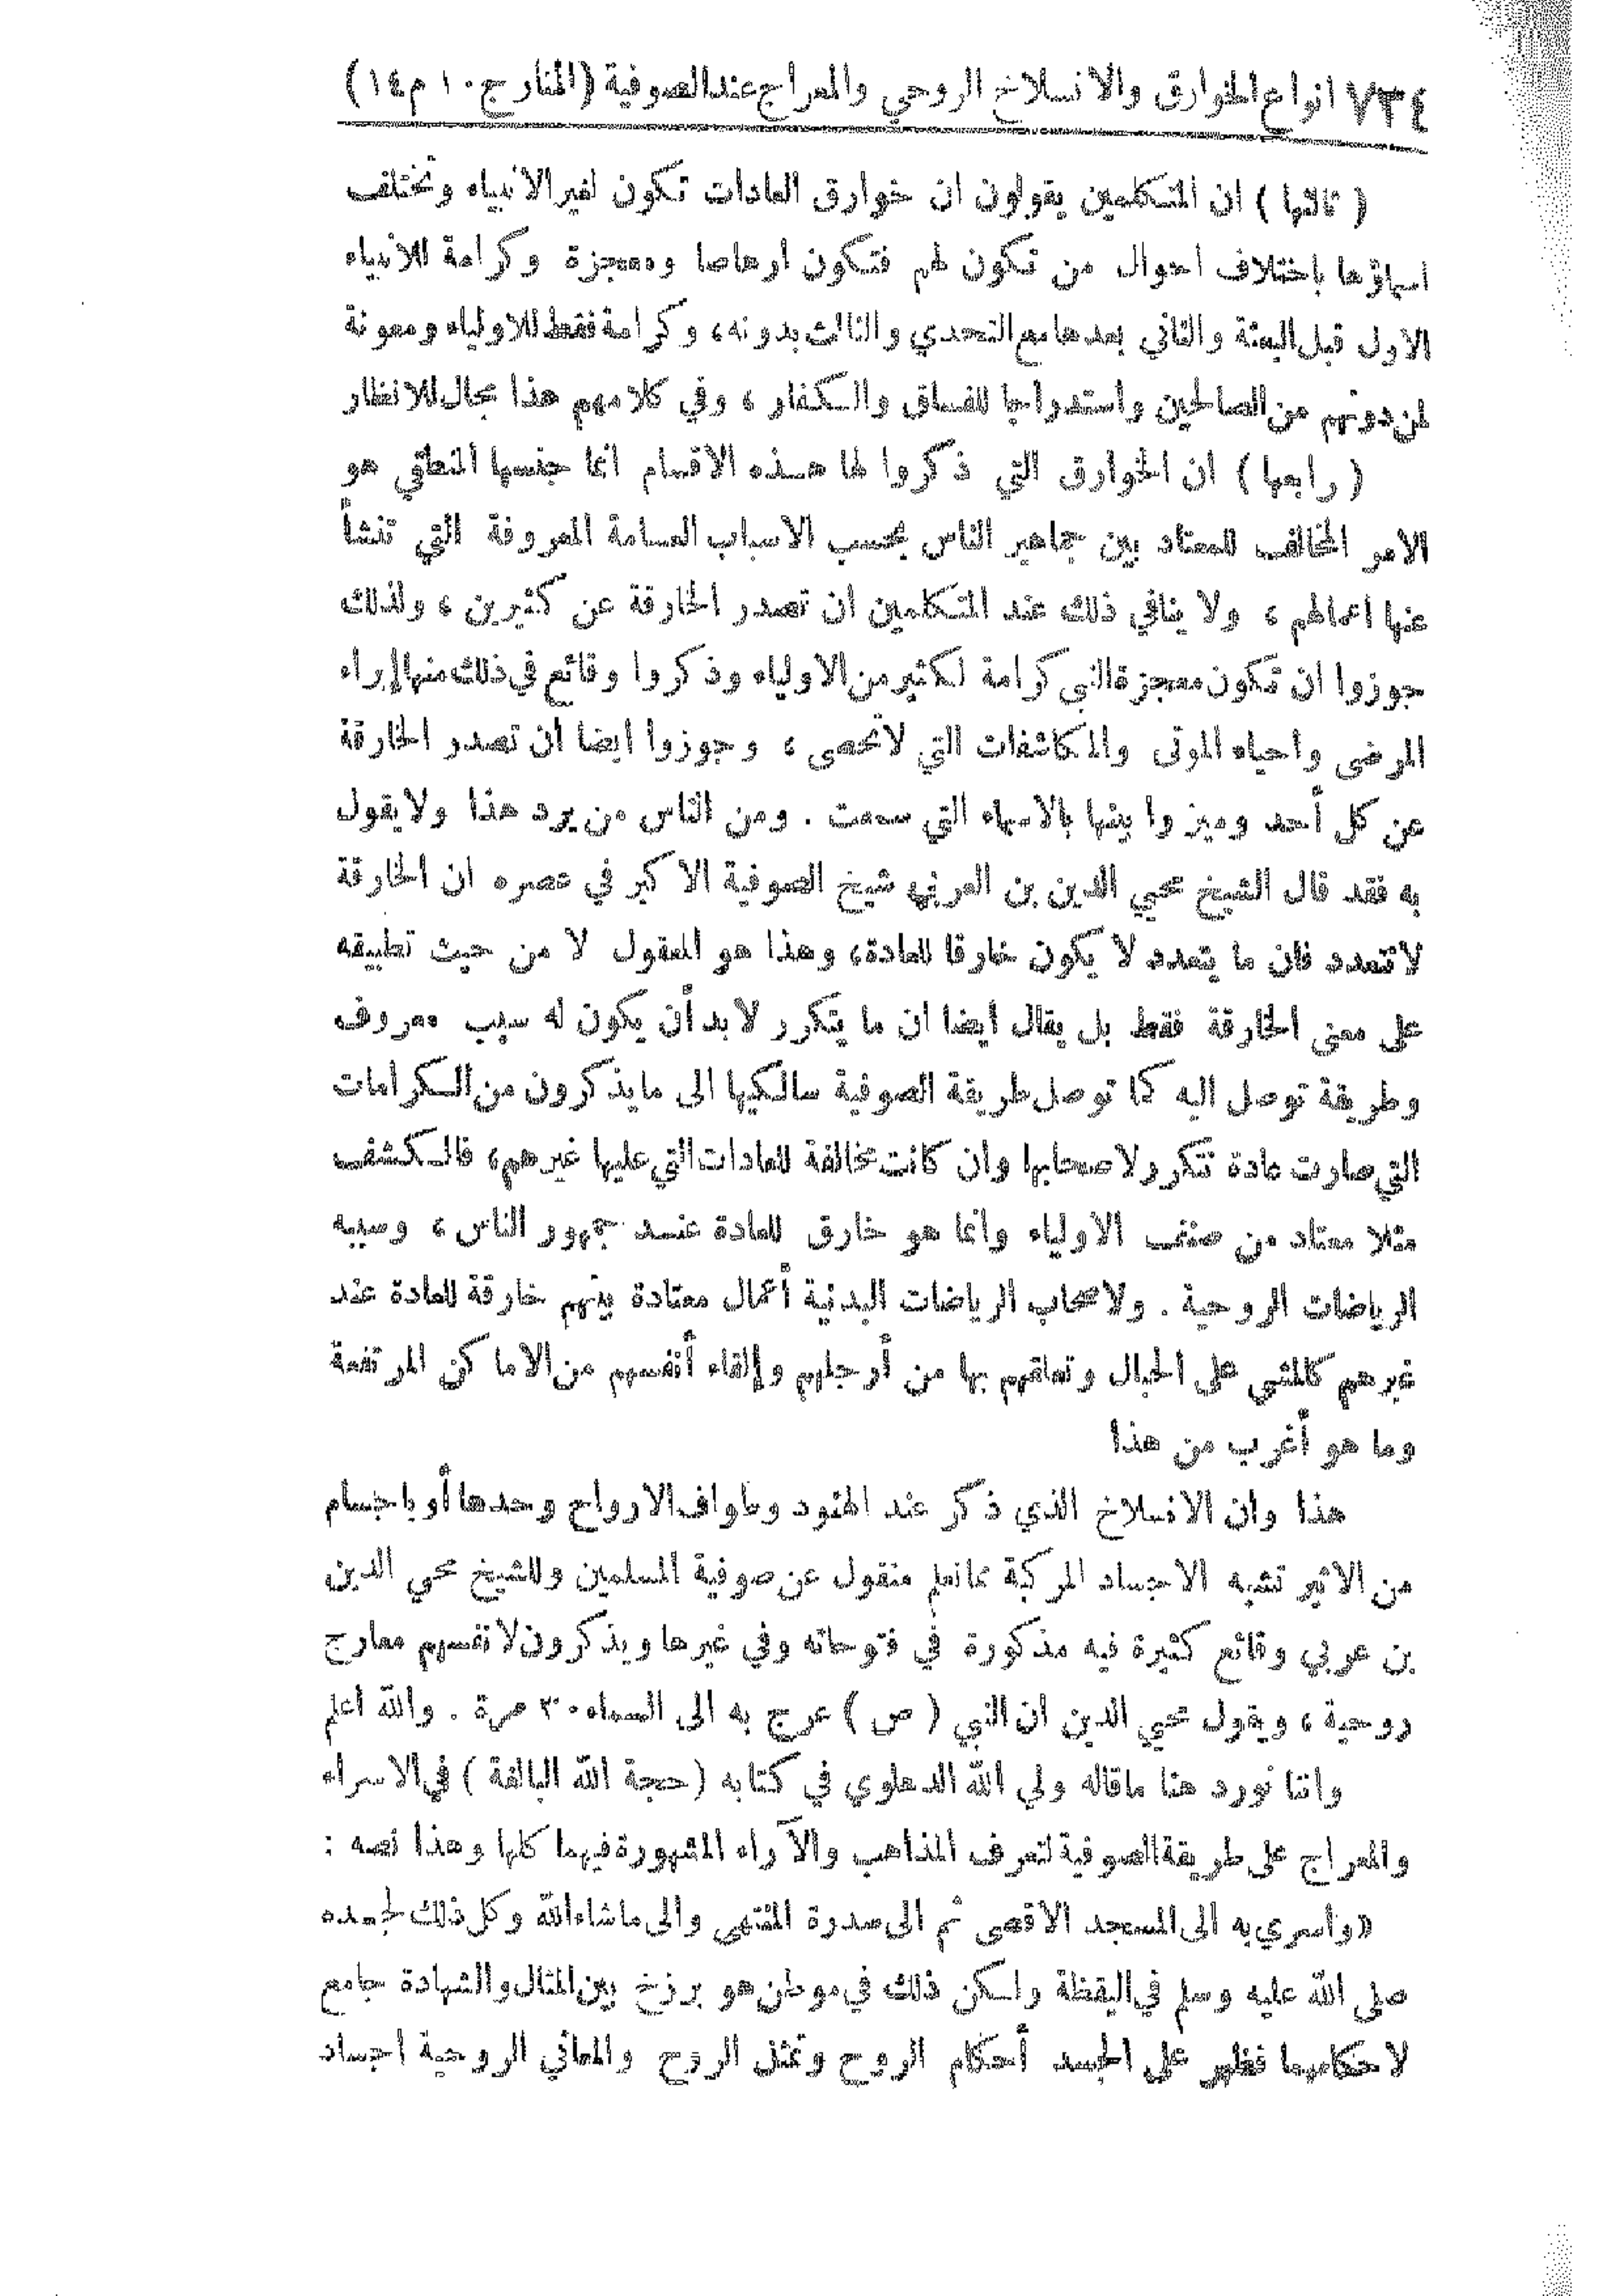 ٧٣٤ انواع الخوارق والانسلاخ الروحي والمعراج عند الصوفية (المنار ج ١٠ م ١٤)
( ثالثها ) ان المتكلمين يقولون ان خوارق العادات تكون لغير الانبياء وتختلف
اسماؤها باختلاف احوال من تكون لهم فتكون ارهاصا ومعجزة وكرامة للانبياء
الاول قبل البعثة والثاني بعدها مع التحدي والثالث بدونه، وكرامة فقط للاولياء ومعونة
لمن دونهم من الصالحين واستدراجا للفساق والكفار ، وفي كلامهم هذا مجال للانظار
( رابعها ) ان الخوارق التي ذكروا لها هذه الاقسام انما جنسها المنطقي هو
الامر المخالف للمعتاد بين جماهير الناس بحسب الاسباب العامة المعروفة التي تنشأ
عنها اعمالهم ، ولا ينافي ذلك عند المتكلمين ان تصدر الخارقة عن كثيرين ، ولذلك
جوزوا ان تكون معجزة النبي كرامة لكثير من الاولياء وذكروا وقائع في ذلك منها إبراء
المرضى واحياء الموتى والمكاشفات التي لا تحصى ، وجوزوا ايضا ان تصدر الخارقة
عن كل أحد وميزوا بينها بالاسماء التي سمعت . ومن الناس من يرد هذا ولا يقول
به فقد قال الشيخ محيي الدين بن العربي شيخ الصوفية الاكبر في عصره ان الخارقة
لا تتعدد فان ما يتعدد لا يكون خارقا للعادة، وهذا هو المعقول لا من حيث تطبيقه
على معنى الخارقة فقط بل يقال أيضا ان ما يتكرر لابد أن يكون له سبب معروف
وطريقة توصل اليه كما توصل طريقة الصوفية سالكيها الى ما يذكرون من الكرامات
التي صارت عادة تتكرر لاصحابها وان كانت مخالفة للعادات التي عليها غيرهم، فالكشف
مثلا معتاد من صنف الاولياء وانما هو خارق للعادة عند جمهور الناس ، وسببه
الرياضات الروحية . ولاصحاب الرياضات البدنية أعمال معتادة بينهم خارقة للعادة عند
غيرهم كالمشي على الحبال وتعلقهم بها من أرجلهم وإلقاء أنفسهم من الاماكن المرتفعة
وما هو أغرب من هذا
هذا وان الانسلاخ الذي ذكر عند الهنود وطواف الارواح وحدها أو باجسام
من الاثير تشبه الاجساد المركبة مما نعلم منقول عن صوفية المسلمين وللشيخ محي الدين
بن عربي وقائع كثيرة فيه مذكورة في فتوحاته وفي غيرها ويذكرون لانفسهم معارج
روحية ، ويقول محيي الدين ان النبي ( ص ) عرج به الى السماء ٣٠ مرة . والله اعلم
واننا نورد هنا ما قاله ولي الله الدهلوي في كتابه ( حجة الله البالغة ) في الاسراء
والمعراج على طريقة الصوفية لتعرف المذاهب والآراء المشهورة فيهما كلها وهذا نصه :
«وأسري به الى المسجد الاقصى ثم الى سدرة المنتهى والى ما شاء الله وكل ذلك لجسده
صلى الله عليه وسلم في اليقظة ولكن ذلك في موطن هو برزخ بين المثال والشهادة جامع
لاحكامهما فظهر على الجسد أحكام الروح وتمثل الروح والمعاني الروحية اجساد